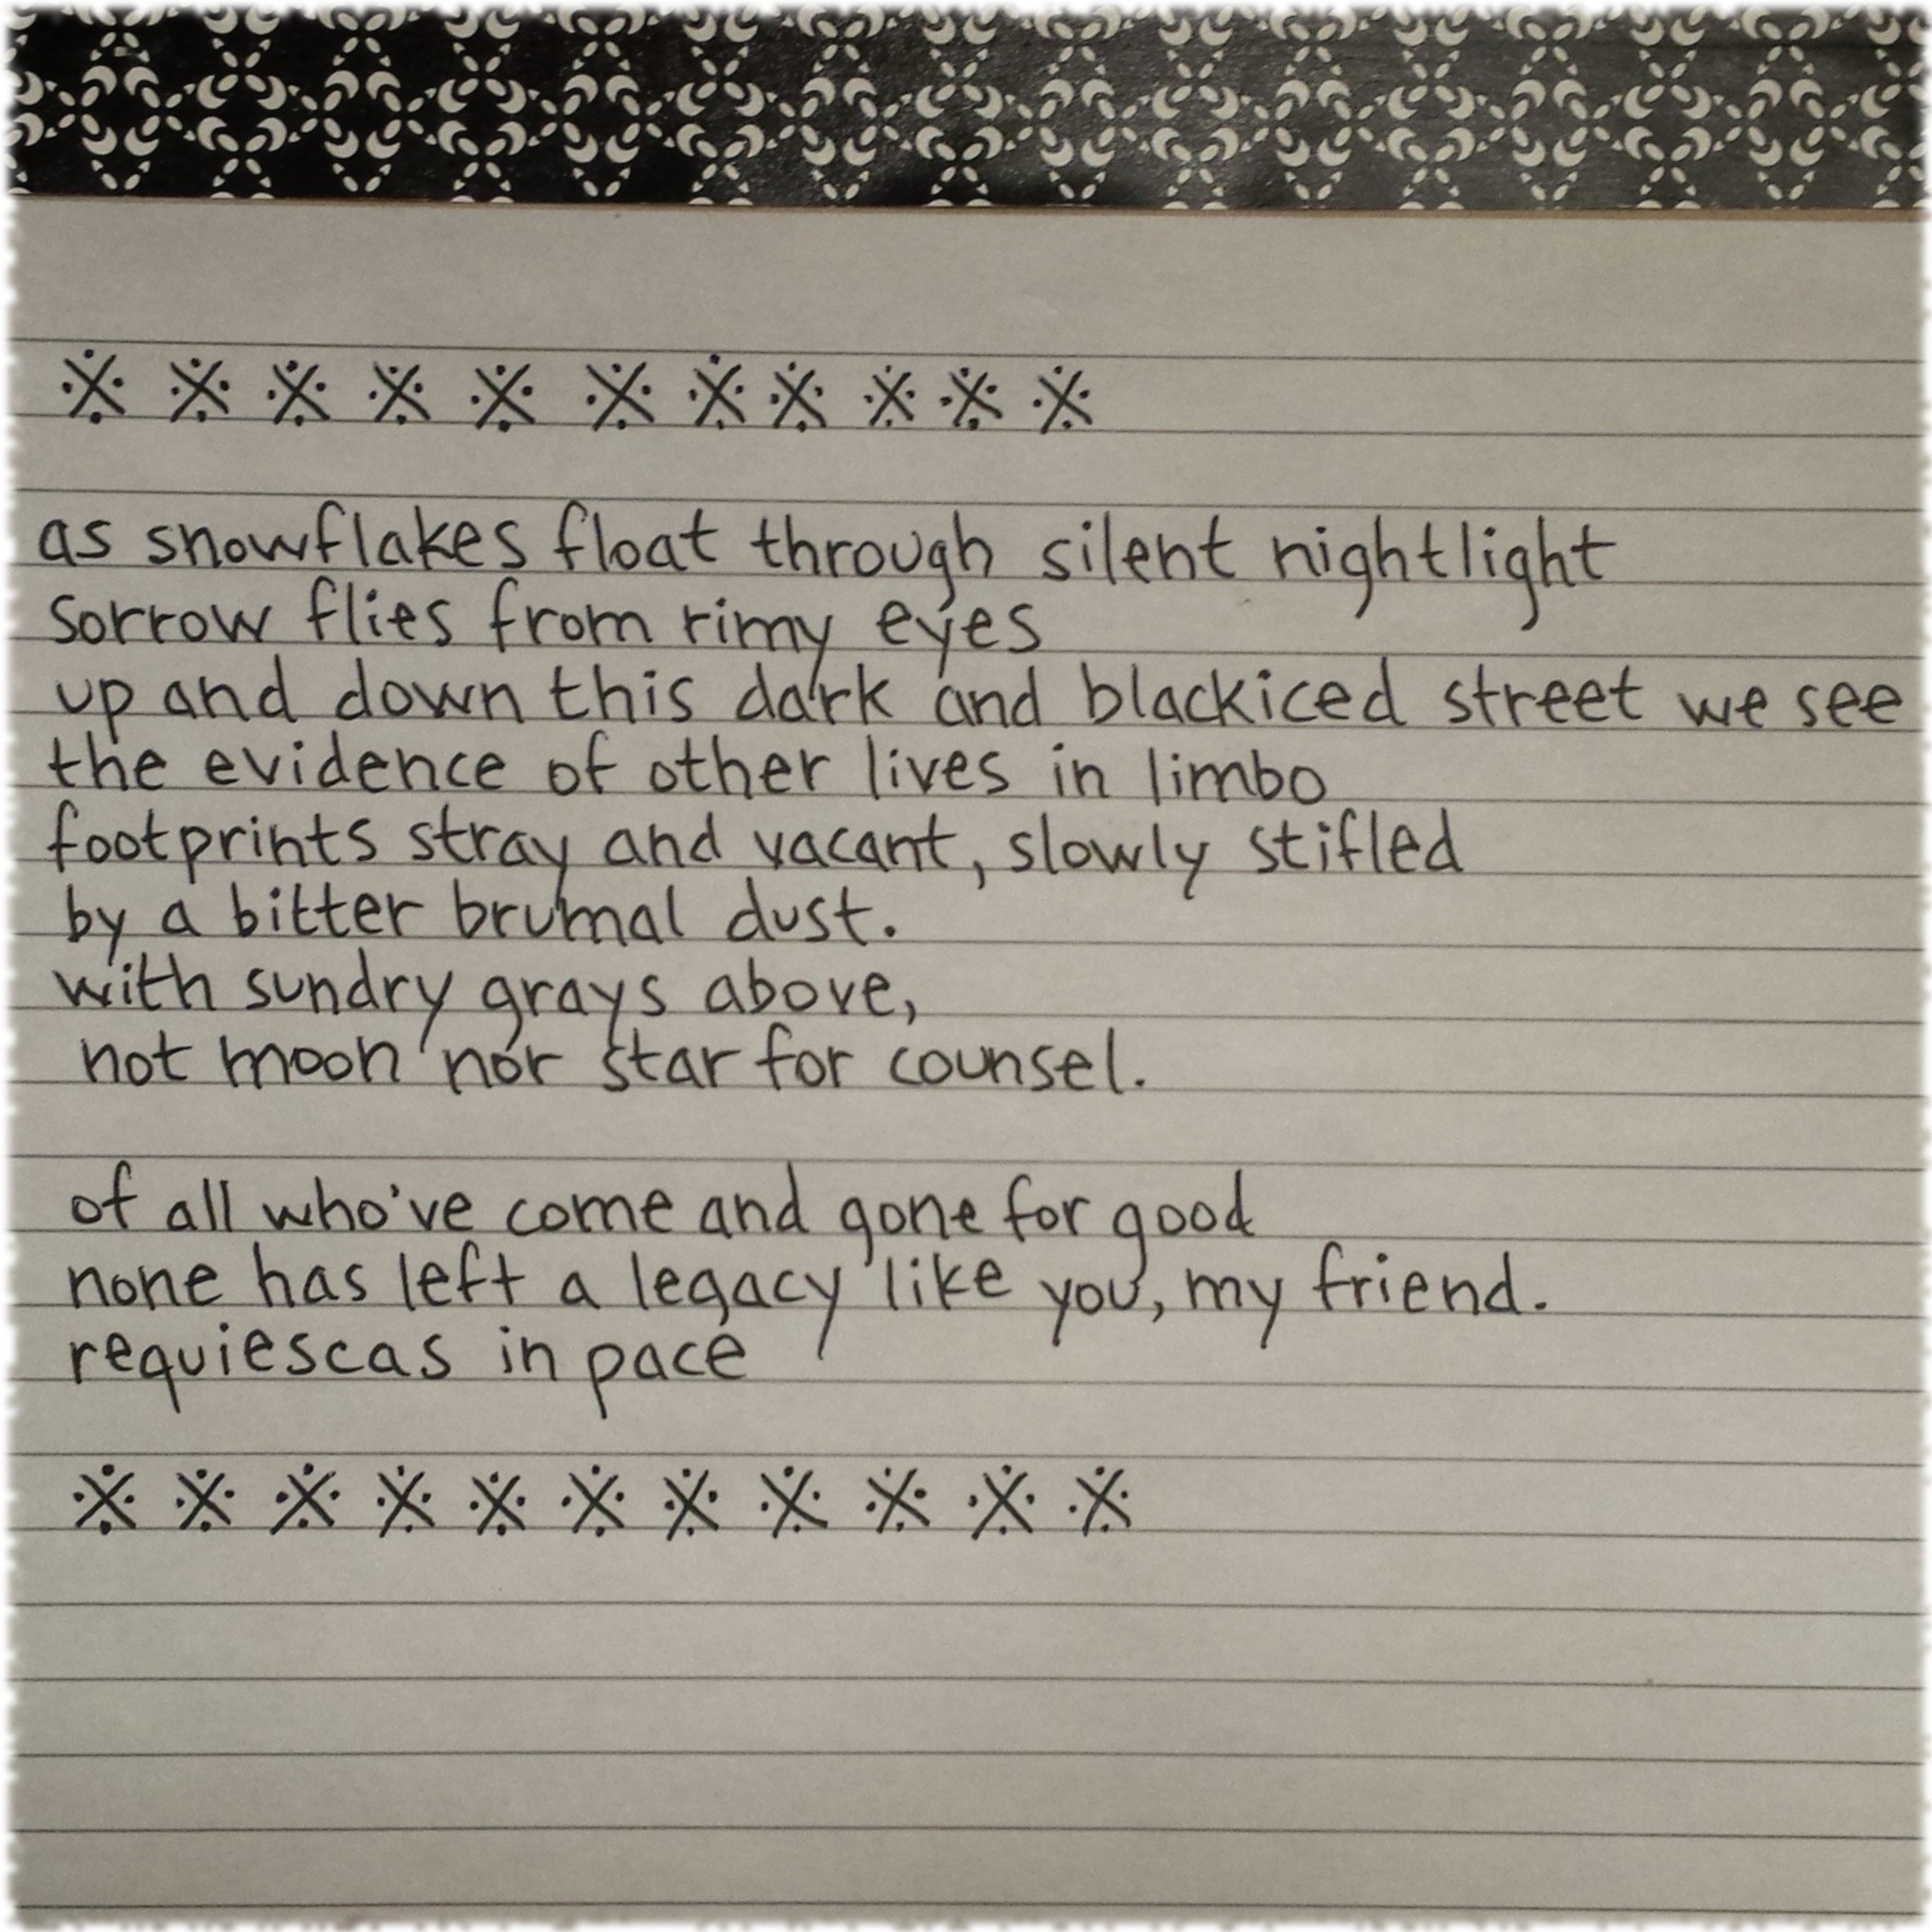 ※ ※ ※ ※ ※ ※ ※ ※ ※ ※ ※
as snowflakes float through silent nightlight
sorrow flies from rimy eyes
up and down this dark and blackiced street we see
the evidence of other lives in limbo
footprints stray and vacant, slowly stifled
by a bitter brumal dust.
with sundry grays above,
not moon nor star for counsel.
of all who've come and gone for good
none has left a legacy like you, my friend.
requiescas in pace
※ ※ ※ ※ ※ ※ ※ ※ ※ ※ ※